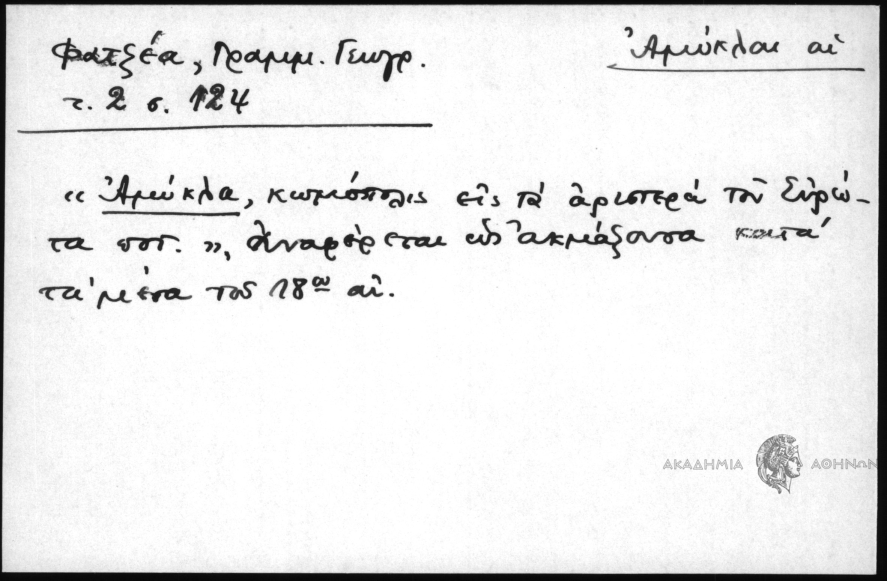 Φατζέα, Γραμμ. Γεωγρ.
τ. 2 σ. 124
Ἀμύκλαι αἱ
« Ἀμύκλα, κωμόπολις εἰς τὰ ἀριστερά τοῦ Εὐρώ-
τα ποτ. », ἀναφέρεται ὡς ἀκμάζουσα κατά
τα μέσα τοῦ 18ου αἰ.
ΑΚΑΔΗΜΙΑ ΑΘΗΝΩΝ